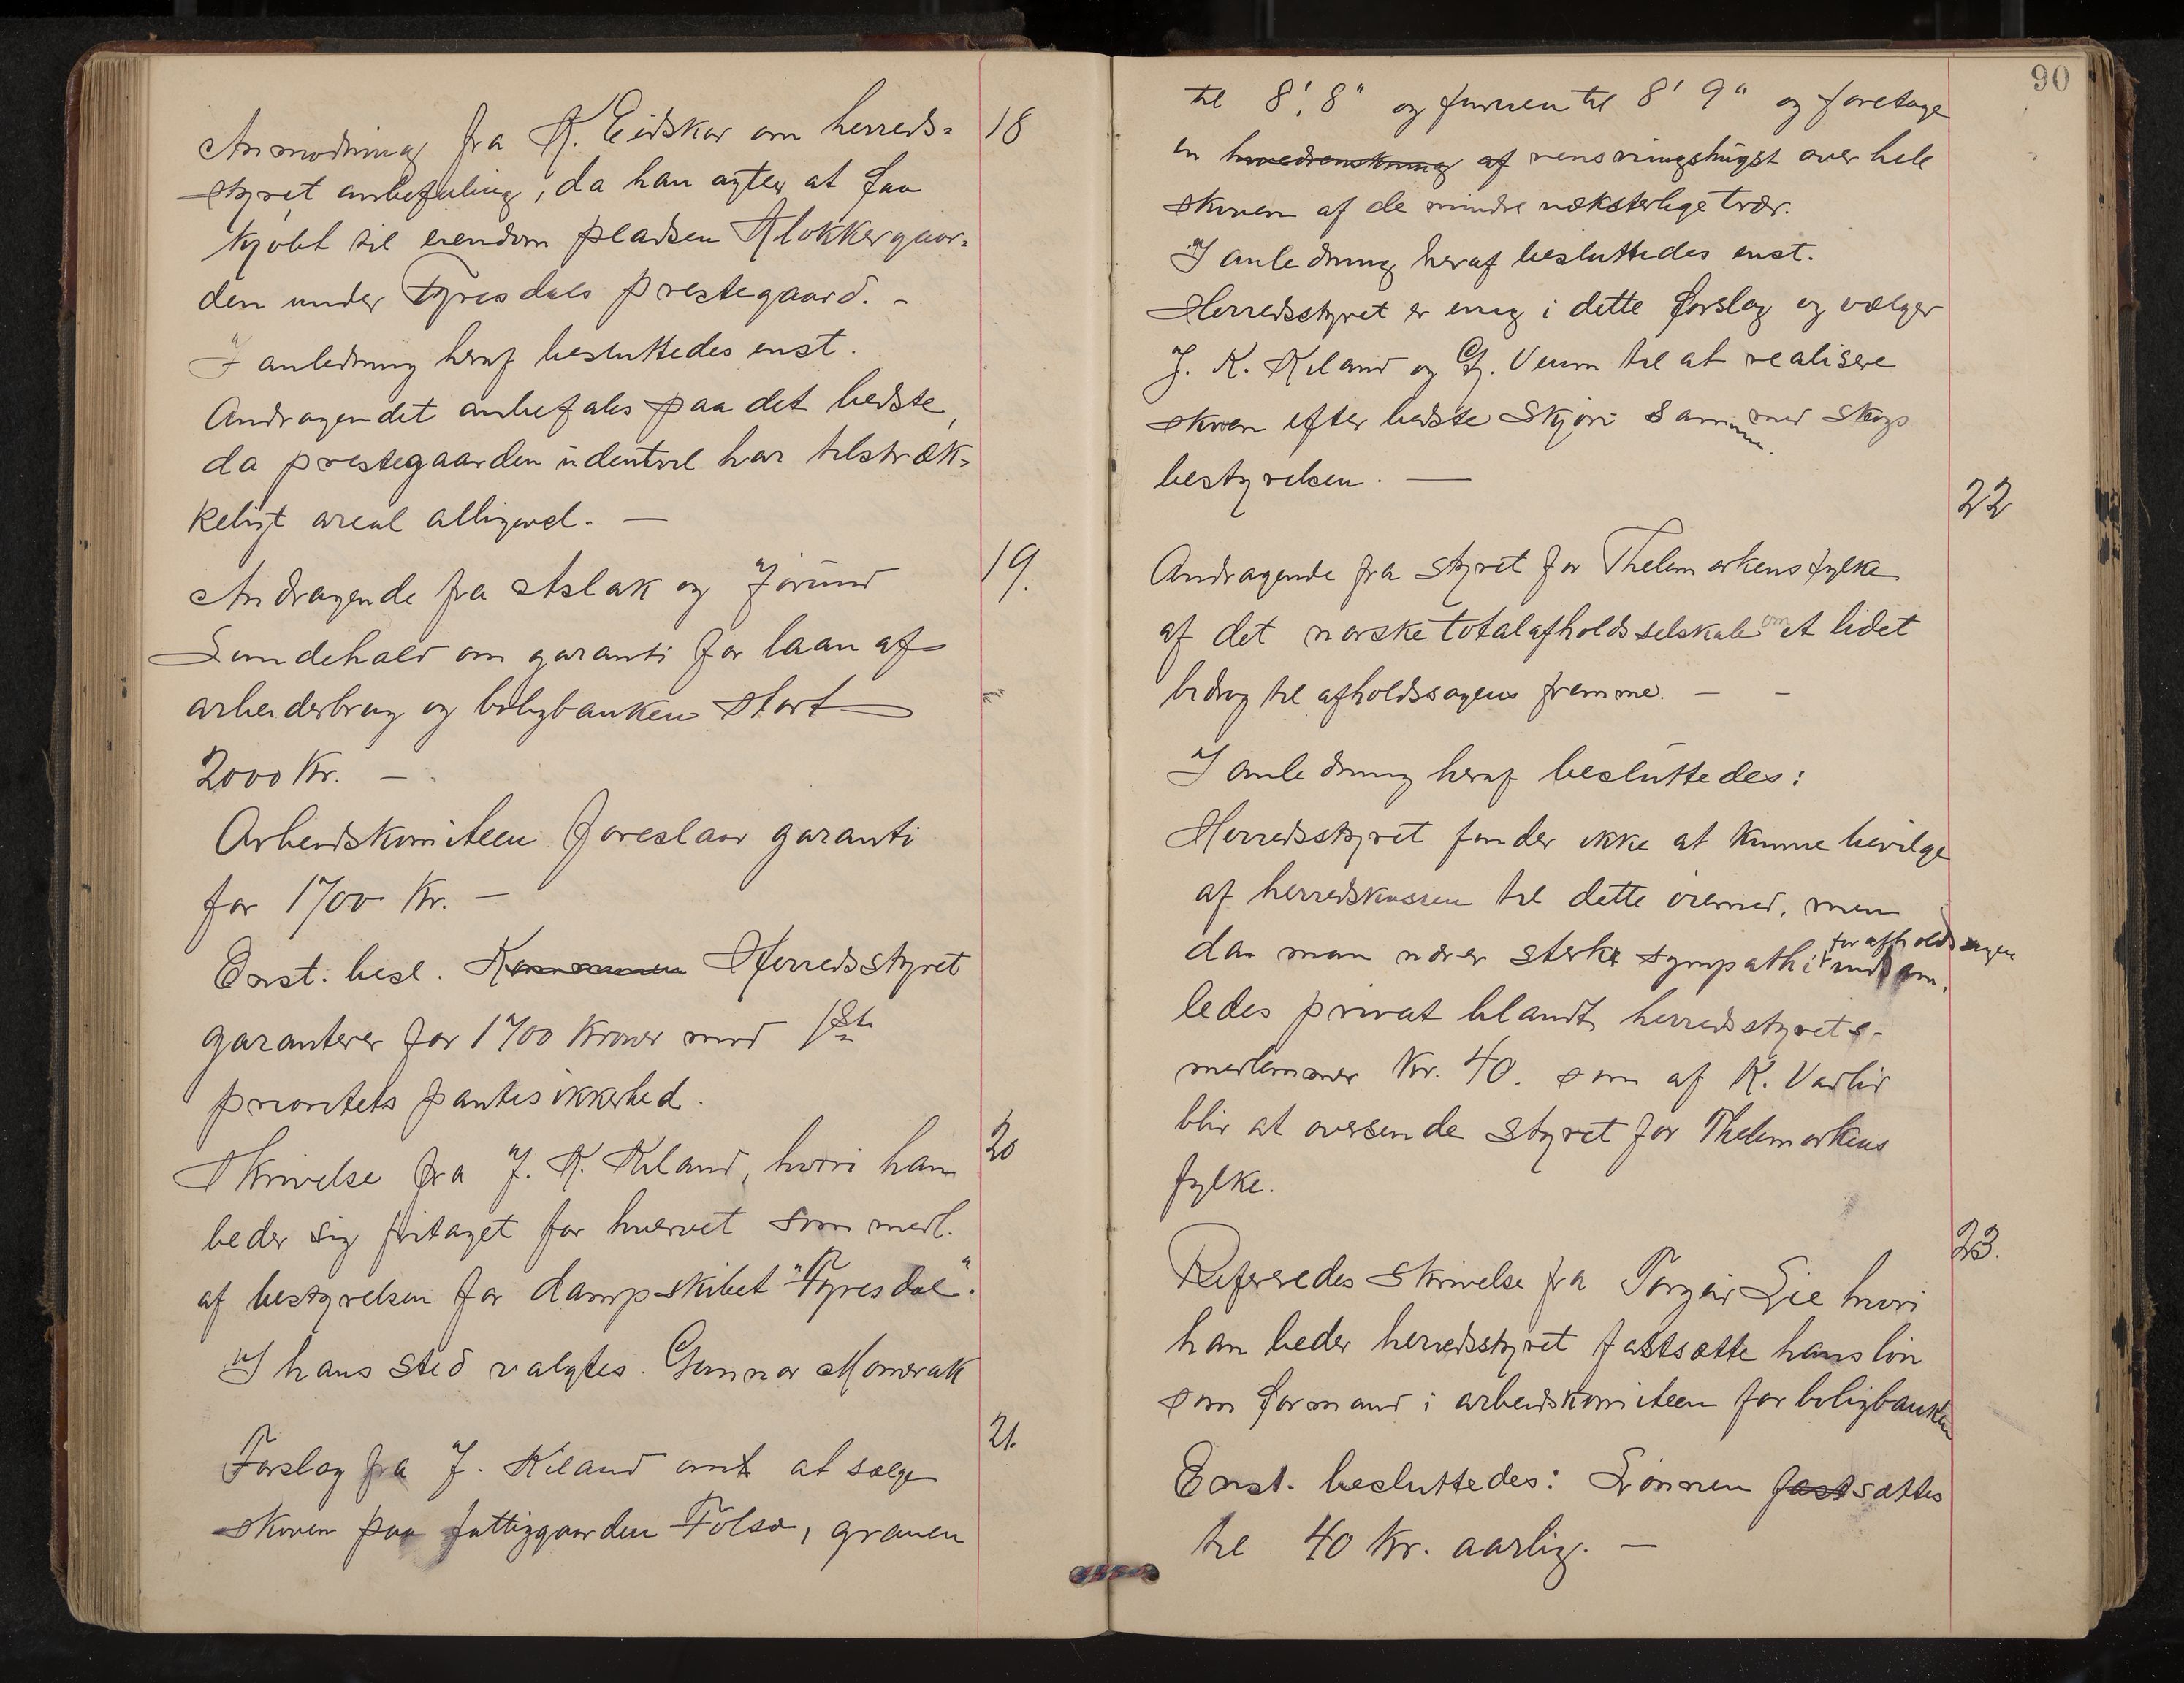 Anmodning fra K. Eidskar om herreds= 18
styret anbefaling, da han agter at faa
kjøbt til eiendom pladsen Klokkergaar=
den under Tyresdals prestegaard. -
I anledning heraf besluttedes enst.
Andragendet anbefales paa det bedste,
da prestegaarden udentvil har tilstræk=
keligt areal alligevel. —
Andragende fra Aslak og Jørund 19.
Sundehald om garanti for laan af
arbeiderbrug og boligbanken stort
2000 Kr. —
Arbeidskomiteen foreslaar garanti
for 1700 Kr. —
Enst. besl. Kommunen Herredsstyret
garanterer for 1700 kroner mod 1ste
prioritets pantesikkerhed.
Skrivelse fra J. K. Kiland, hvori han 20
beder sig fritaget for hvervet som medl.
af bestyrelsen for dampskibet "Tyresdal".
I hans sted valgtes Gunnar Momrak
Forslag fra J. Kiland om at sælge 21.
skoven paa fattiggaarden Tolsø, granen
90
til 8', 8" og furuen til 8' 9" og foretage
en af rensningshugst over hele
skoven af de mindre vækstærlige trær.
I anledning heraf besluttedes enst.
Herredsstyret er enig i dette forslag og vælger
J. K. Kiland og G. Veum til at realisere
skoven efter bedste skjøn sammen med skogs
bestyrelsen. —
22
Andragende fra styret for Thelemarkens fylke
af det norske totalafholdsselskab om et lidet
bidrag til afholdssagens fremme. — -
I anledning heraf besluttedes:
Herredsstyret finder ikke at kunne bevilge
af herredskassen til dette øiemed, men
da man nærer sterke sympathi for afholdssagen indsam-
ledes privat blandt herredsstyrets-
medlemmer kr. 40. som af K. Vadlid
blir at oversende styret for Thelemarkens
fylke.
23.
Refereredes skrivelse fra Torgeir Lie hvori
han beder herredsstyret fastsætte hans løn
som formand i arbeidskomiteen for boligbanken
Enst. besluttedes: Lønnen fastsættes
til 40 kr. aarlig. —